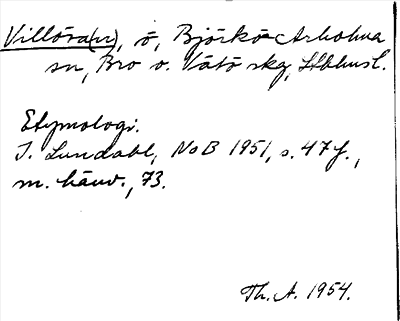 Villöra(n), ö, Björkö-Arholma
sn, Bro o. Vätö skg, Sthlmsl.
Etymologi.
I. Lundahl, NoB 1951, s. 47 f.,
m. hänv., 73.
Th. A. 1954.